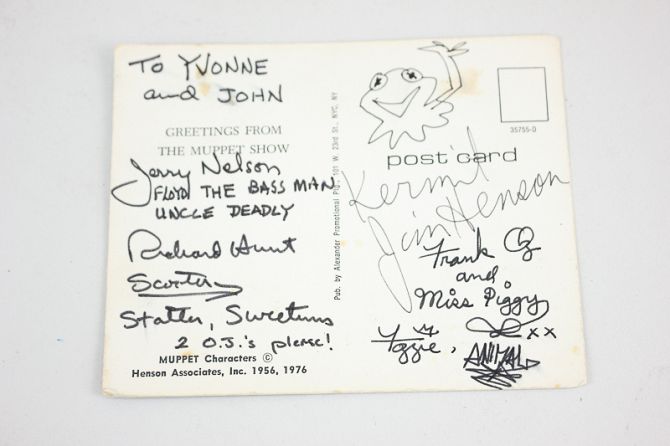 TO YVONNE
and JOHN
GREETINGS FROM
THE MUPPET SHOW
Jerry Nelson
FLOYD THE BASS MAN
UNCLE DEADLY
Richard Hunt
Scooter
Statler, Sweetums
2 O.J.'s please!
MUPPET Characters ©
Henson Associates, Inc. 1956, 1976
Pub. by Alexander Promotional Ptg., 101 W. 23rd St., NYC, NY
35755-D
post card
Kermit
Jim Henson
Frank Oz
and
Miss Piggy
xx
Fozzie,
ANIMAL